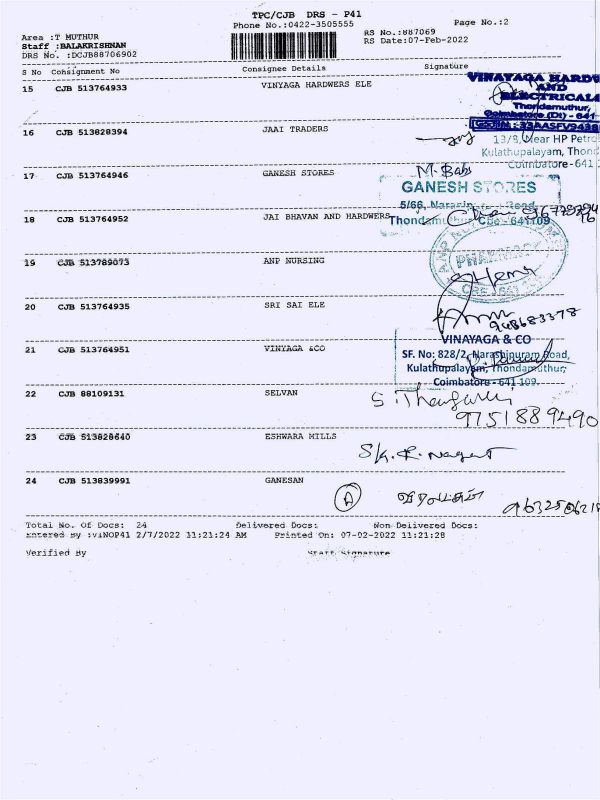 TPC/CJB DRS - P41
Phone No.:0422-3505555
Page No.:2
Area :T MUTHUR
RS No.:887069
Staff :BALAKRISHNAN
RS Date:07-Feb-2022
DRS No. :DCJB88706902
S No Consignment No Consignee Details Signature
15 CJB 513764933 VINYAGA HARDWERS ELE
VINAYAGA HARDW
AND
ELECTRICAL
Thondamuthur,
Coimbatore (Dt) - 641
16 CJB 513828394 JAAI TRADERS
13/8, Near HP Petro
Kulathupalayam, Thond
Coimbatore - 641
17 CJB 513764946 GANESH STORES
M. Babu
GANESH STORES
5/66,
Road,
18 CJB 513764952 JAI BHAVAN AND HARDWERS
Thondamuthur, Cbe - 641109
19 CJB 513789073 ANP NURSING
PHARMACY
Hema
20 CJB 513764935 SRI SAI ELE
948683378
21 CJB 513764951 VINYAGA &CO
VINAYAGA & CO
SF. No: 828/2, Narashipuram Road,
Kulathupalayam, Thondamuthur,
Coimbatore - 641 109.
22 CJB 88109131 SELVAN
9751889490
23 CJB 513828640 ESHWARA MILLS
24 CJB 513839991 GANESAN
A
Total No. Of Docs: 24 Delivered Docs: Non Delivered Docs:
Entered By :VINOP41 2/7/2022 11:21:24 AM Printed On: 07-02-2022 11:21:28
Verified By Staff Signature